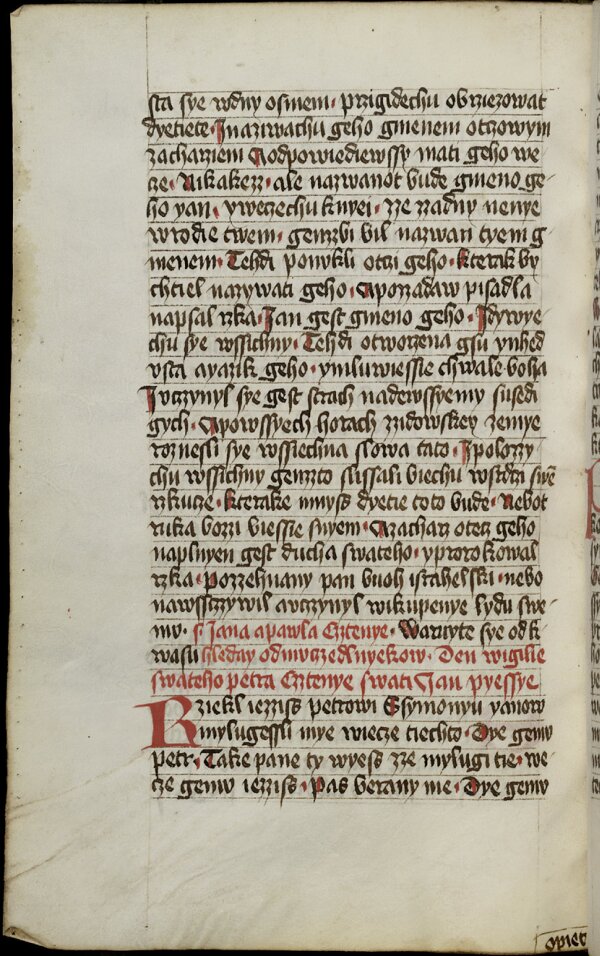 sta sye wdny osmem· przigidechu obrziezowat
dyetiete· Inaziwachu geho gmenem otczowym
zachariem Aodpowiediewssy mati geho we
cze· Nikakezz· ale nazwanot bude gmeno ge
ho yan· ywecechu knyei· zze zzadny nenye
wrodie twem· genzzbi bil nazwan tyem g
menem· Tehdi ponukli otci geho· kterak by
chtiel nazywati geho· Apozadaw pisadla
napsal rzka· Jan gest gmeno geho· Idywye
chu sye wssichny· Tehdi otworzena gsu ynhed
vsta ayazik geho· ymluwiessie chwale boha
Ivczynyl sye gest strach nadewssyemy susedi
gych· Apowssyech horach zidowskey zemye
roznesli sye wssiechna slowa tato· Ipolozzy
chu wssichny genzto slissali biechu wsrdci swe
rzkucze· kterake mnyss dyetie toto bude· Nebot
ruka bozzi biessie snyem· Azacharz otecz geho
naplnyen gest ducha swateho· yprorokowal
rzka· pozzehnany pan buoh israhelski· nebo
nawsstyewil avczynyl wikupenye lydu swe
mu· s· Jana apawla Cztenye· Waruyte sye od k
wasu hleday odmuczedlnyekow· Den wigilie
swateho petra Cztenye swati Jan pyessye
Rziekl iezziss petrowi Ssymonyu yanow
mylugessli mye wiecze tiechto· Dye gemu
petr· Take pane ty wyess zze mylugi tie· we
cze gemu iezziss· pas berany me· Dye gemu
opiet